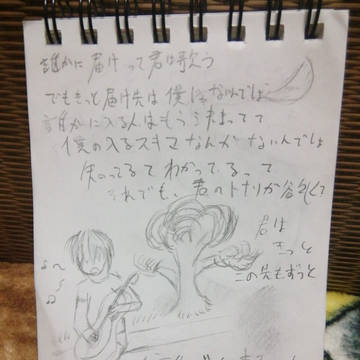 誰かに届けって君は歌う
でもきっと届け先は僕じゃないんでしょ
誰かに入る人はもう決まってて
僕の入るスキマなんかないんでしょ
知ってるってわかってるって
それでも、君のトナリが
君は
きっと
この先もずっと